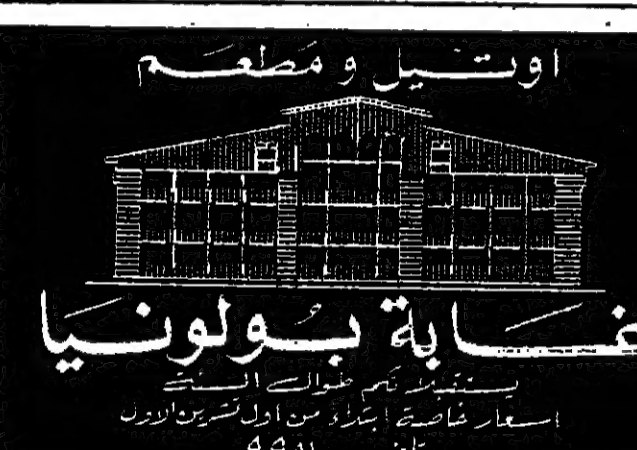 اوتيل و مطعم
غابة بولونيا
يستقبلكم طوال السنة
اسعار خاصة ابتداء من اول تشرين الاول